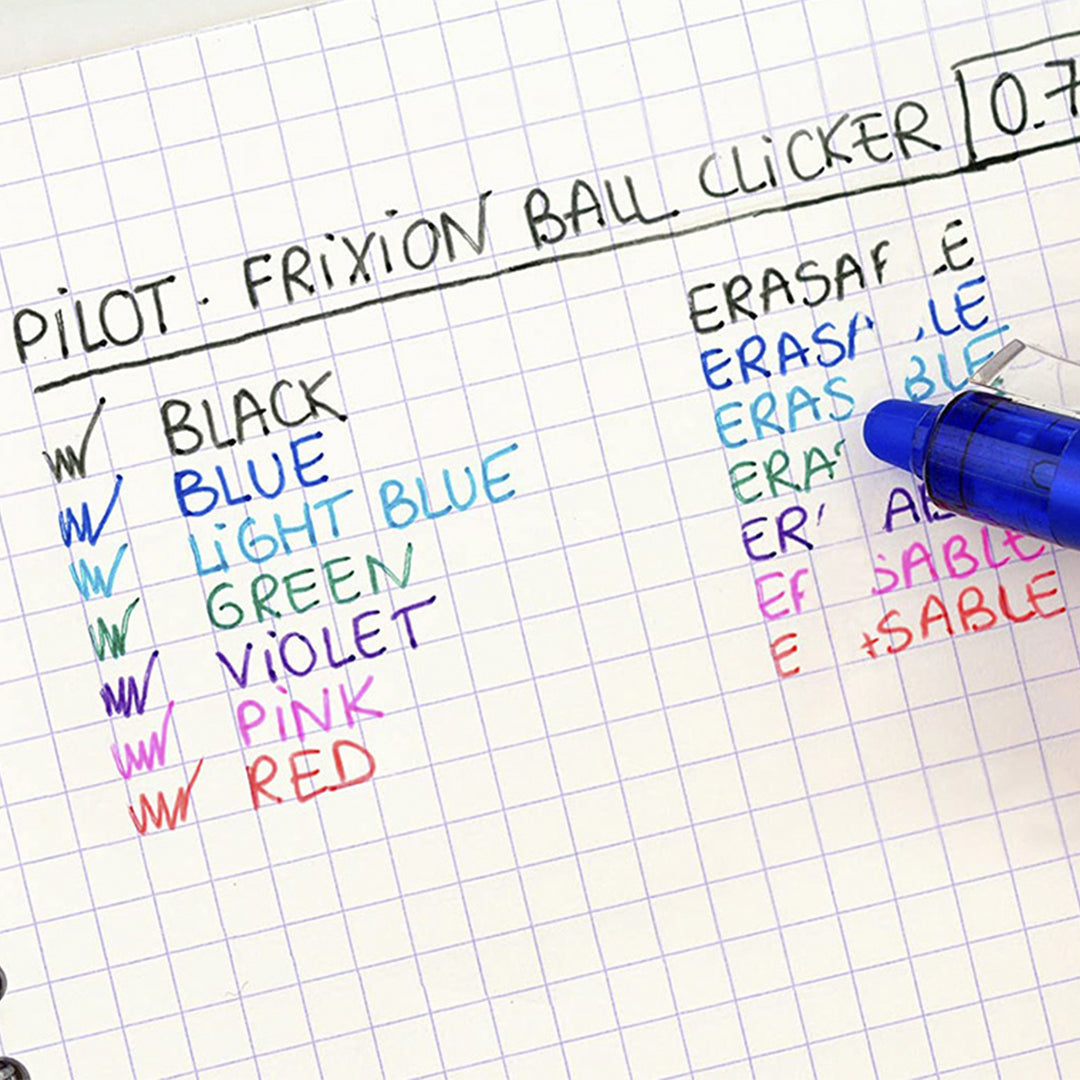 PiLOT · FRiXiON BALL CLiCKER 0.7
BLACK
BLUE
LiGHT BLUE
GREEN
ViOLET
PiNK
RED
ERASA LE
ERASA LE
ERAS BLE
ERA
ER AB
ER SABLE
E ASABLE